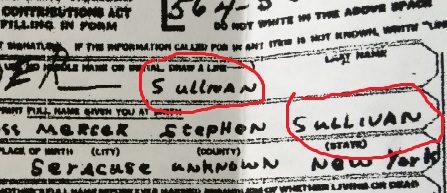 CONTRIBUTIONS ACT
FILLING IN FORM
564-5
DO NOT WRITE IN THE ABOVE SPACE
SIGNATURE. IF THE INFORMATION CALLED FOR IN ANY ITEM IS NOT KNOWN, WRITE
MIDDLE NAME OR INITIAL, DRAW A LINE
LAST NAME
SULLIVAN
PRINT FULL NAME GIVEN YOU AT
MERCER STEPHEN SULLIVAN
PLACE OF BIRTH (CITY) (COUNTY) (STATE)
SERACUSE UNKNOWN NEW YORK
OF WHETHER LIVING OR DEAD